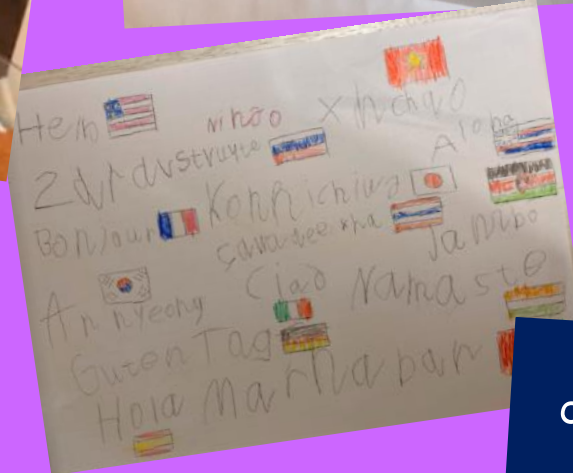 Hello
Nihao
Xin chao
Zdrdvstvuyte
Aloha
Bonjour
Konnichiwa
Savadee kha
Jambo
Annyeong
Ciao
Namaste
Guten Tag
Hola
Marhaban